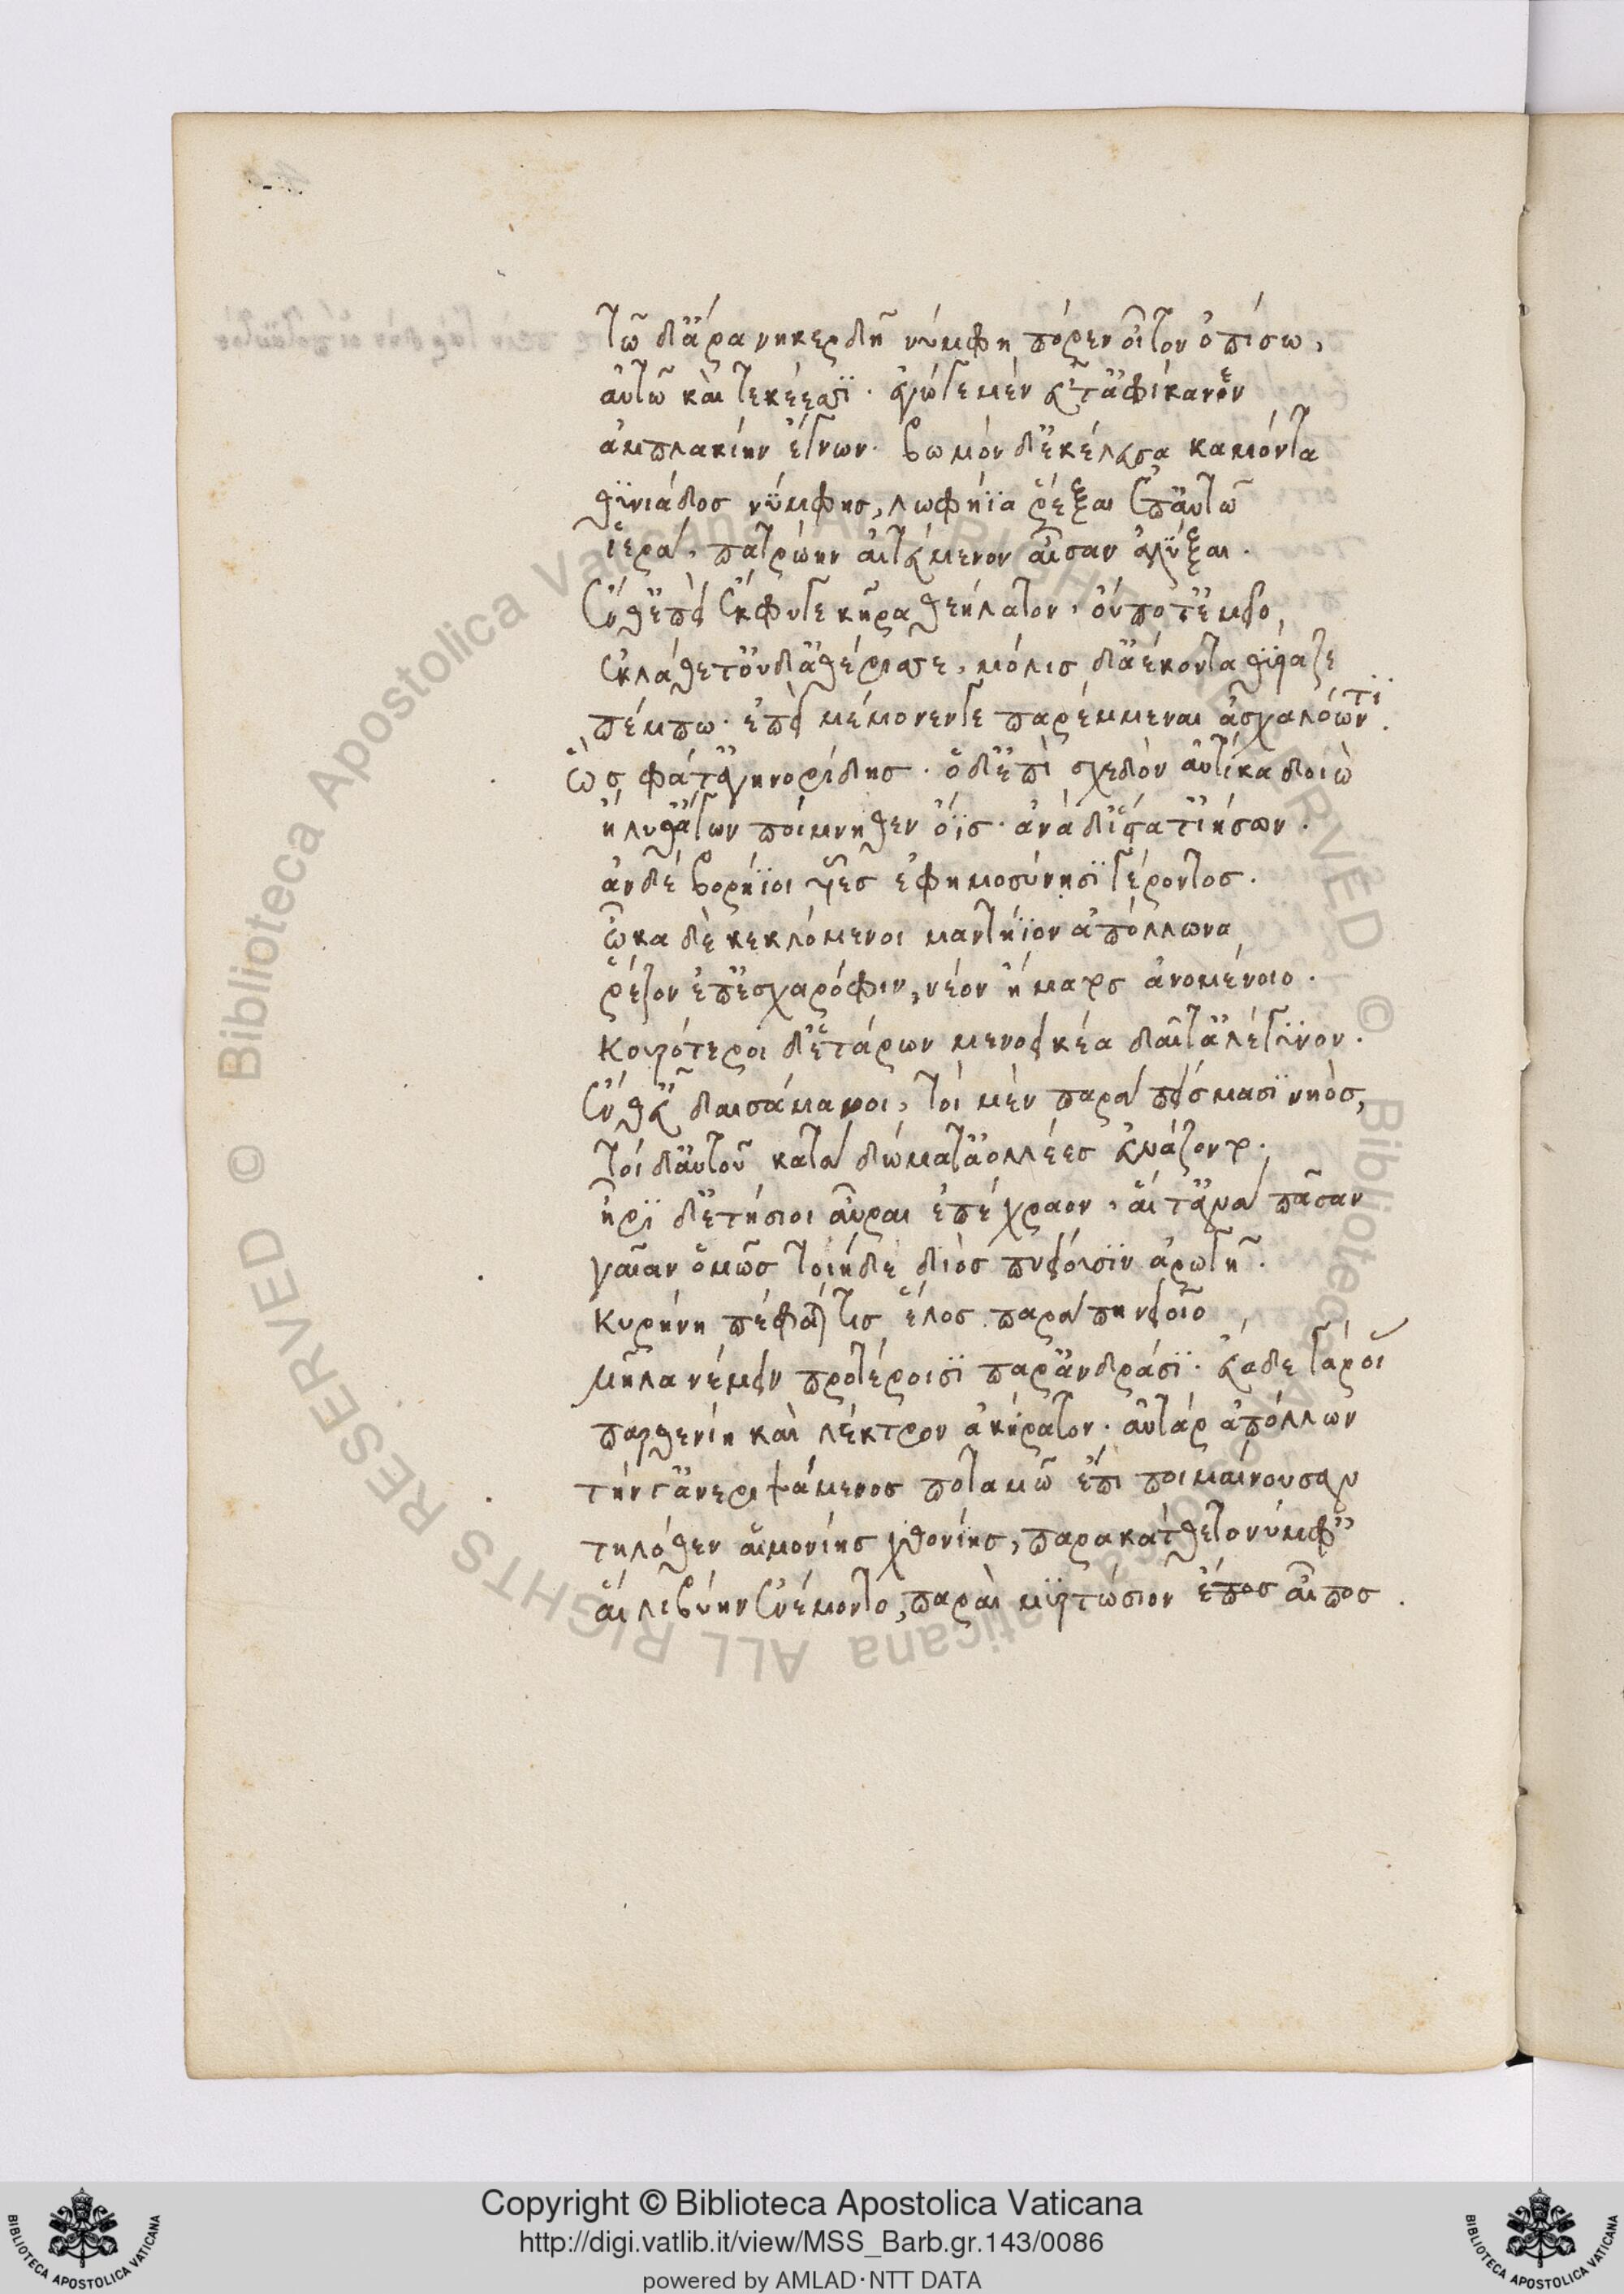 τῶ δ' ἄρα νηκερδῆ νύμφη πόρεν οἶτον ὀπίσω,
αὐτῶ καὶ τεκέεσσϊ. ἐγώ γε μὲν εὖτ' ἀφίκανεν
ἀμπλακίην ἔγνων. βωμὸν δ' ἐκέλευσα καμόντα
θϋνιάδος νύμφης, λωφήϊα ῥέξαι ἐπ' αὐτῶ
ἱερά, πατρώην αἰτεύμενον αἶσαν ἀλύξαι.
ἔνθ' ἐπεὶ ἔκφυγε κῆρα θεήλατον, οὔποτ' ἐμεῖο,
ἐκλάθετ' οὐδ' ἀθέρισσε, μόλις δ' ἀέκοντα θύραζε
πέμπω. ἐπεὶ μέμονέν γε παρέμμεναι ἀσχαλόωντϊ.
ὣς φάτ' ἀγηνορίδης. ὁ δ' ἐπὶ σχεδὸν αὐτίκα δοιὼ
ἤλυθ' ἄγων ποίμνηθεν ὄϊς. ἀνὰ δ' ἵστατ' ἰήσων.
ἂν δὲ βορήϊοι υἷες ἐφημοσύνησϊ γέροντος.
ὦκα δὲ κεκλόμενοι μαντήϊον ἀπόλλωνα
ῥέζον ἐπ' ἐσχαρόφιν, νέον ἤματος ἀνομένοιο.
κουρότεροι δ' ἑτάρων μενοεικέα δαῖτ' ἀλέγϋνον.
ἔνθ' εὖ δαισάμενοι, τοὶ μὲν παρὰ πείσμασϊ νηὸς,
τοὶ δ' αὐτοῦ κατὰ δώματ' ἀολλέες εὐνάζοντο.
ἦρϊ δ' ἐτήσιοι αὖραι ἐπέχραον. αἵ τ' ἀνὰ πᾶσαν
γαῖαν ὁμῶς τοιῆδε διὸς πνείουσϊν ἀρωγῆ.
κυρήνη πέφαταί τις ἕλος παρὰ πηνειοῖο
μῆλα νέμειν προτέροισϊ παρ' ἀνδράσϊ. εὔαδε γάρ οἱ
παρθενίη καὶ λέκτρον ἀκήρατον. αὐτὰρ ἀπόλλων
τήν γ' ἀνερειψάμενος ποταμῶ ἔπι ποιμαίνουσαν
τηλόθεν αἱμονίης χθονίης, παρακάτθετο νύμφαις
αἳ λιβύην ἐνέμοντο, παραὶ μυρτώσιον ἔπος αἶπος.